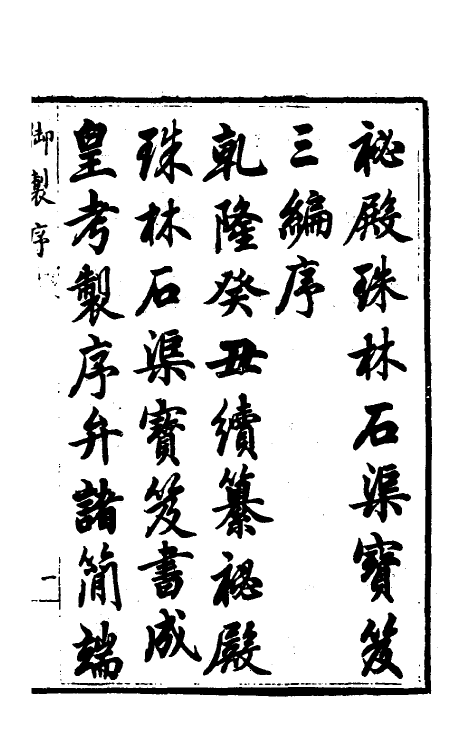 祕殿珠林石渠寶笈
三編序
乾隆癸丑續纂祕殿
珠林石渠寶笈書成
皇考製序弁諸簡端
御製序
一